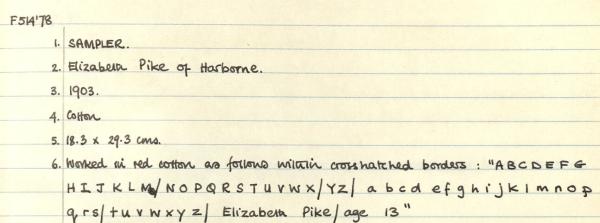 F514'78
1. SAMPLER.
2. Elizabeth Pike of Harborne.
3. 1903.
4. Cotton
5. 18.3 x 29.3 cms.
6. Worked in red cotton as follows within crosshatched borders : "A B C D E F G
H I J K L M/ N O P Q R S T U V W X/ Y Z/ a b c d e f g h i j k l m n o p
q r s/ t u v w x y z/ Elizabeth Pike/ age 13"